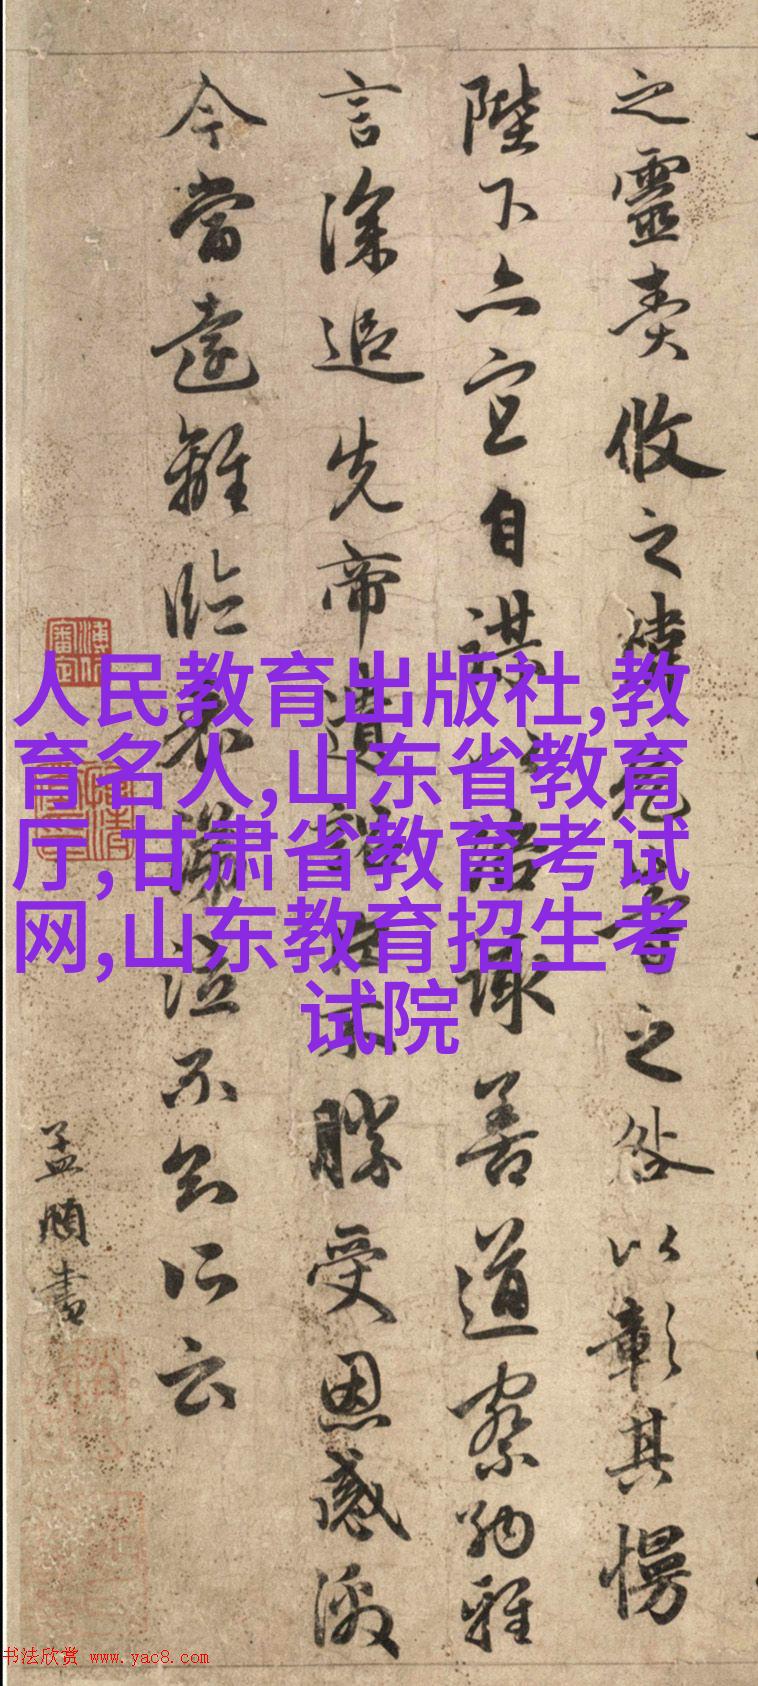 之靈責攸之禕允等之咎以彰其慢
陛下亦宜自謀以諮諏善道察納雅
言深追先帝遺詔臣不勝受恩感激
今當遠離臨表涕泣不知所云
孟頫書
人民教育出版社,教
育名人,山东省教育
厅,甘肃省教育考试
网,山东教育招生考
试院
书法欣赏 www.yac8.com